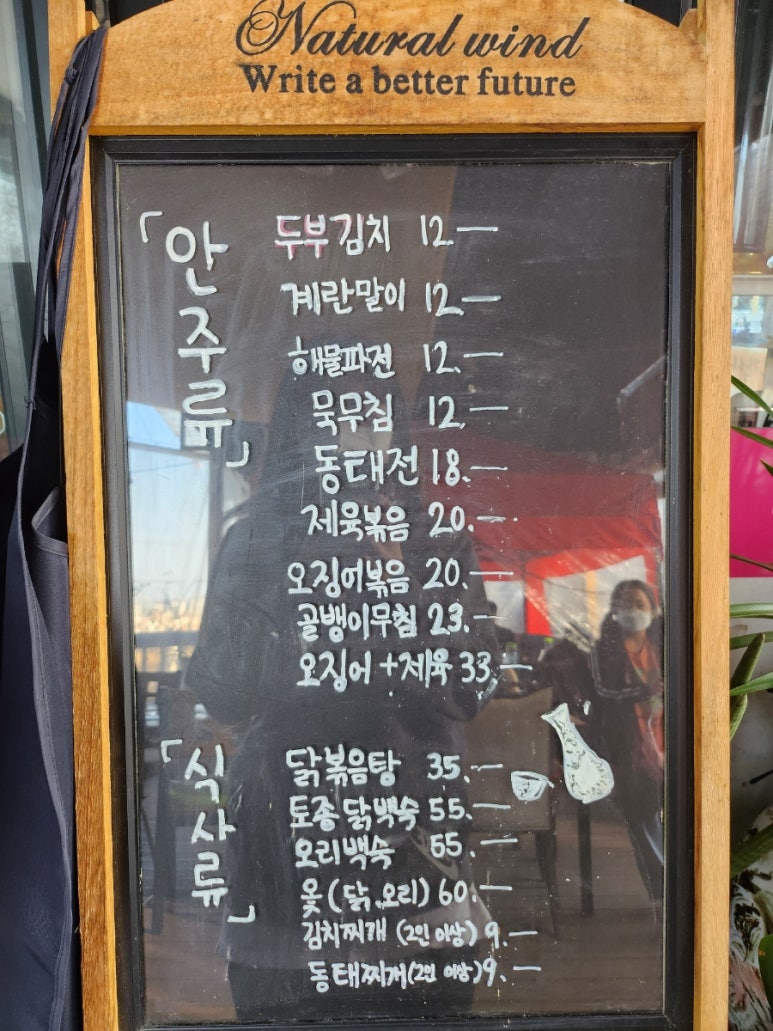 Natural wind
Write a better future
「안주류」
두부김치 12.—
계란말이 12.—
해물파전 12.—
묵무침 12.—
동태전 18.—
제육볶음 20.—
오징어볶음 20.—
골뱅이무침 23.—
오징어+제육 33.—
「식사류」
닭볶음탕 35.—
토종닭백숙 55.—
오리백숙 55.—
옻(닭,오리) 60.—
김치찌개 (2인 이상) 9.—
동태찌개(2인 이상) 9.—